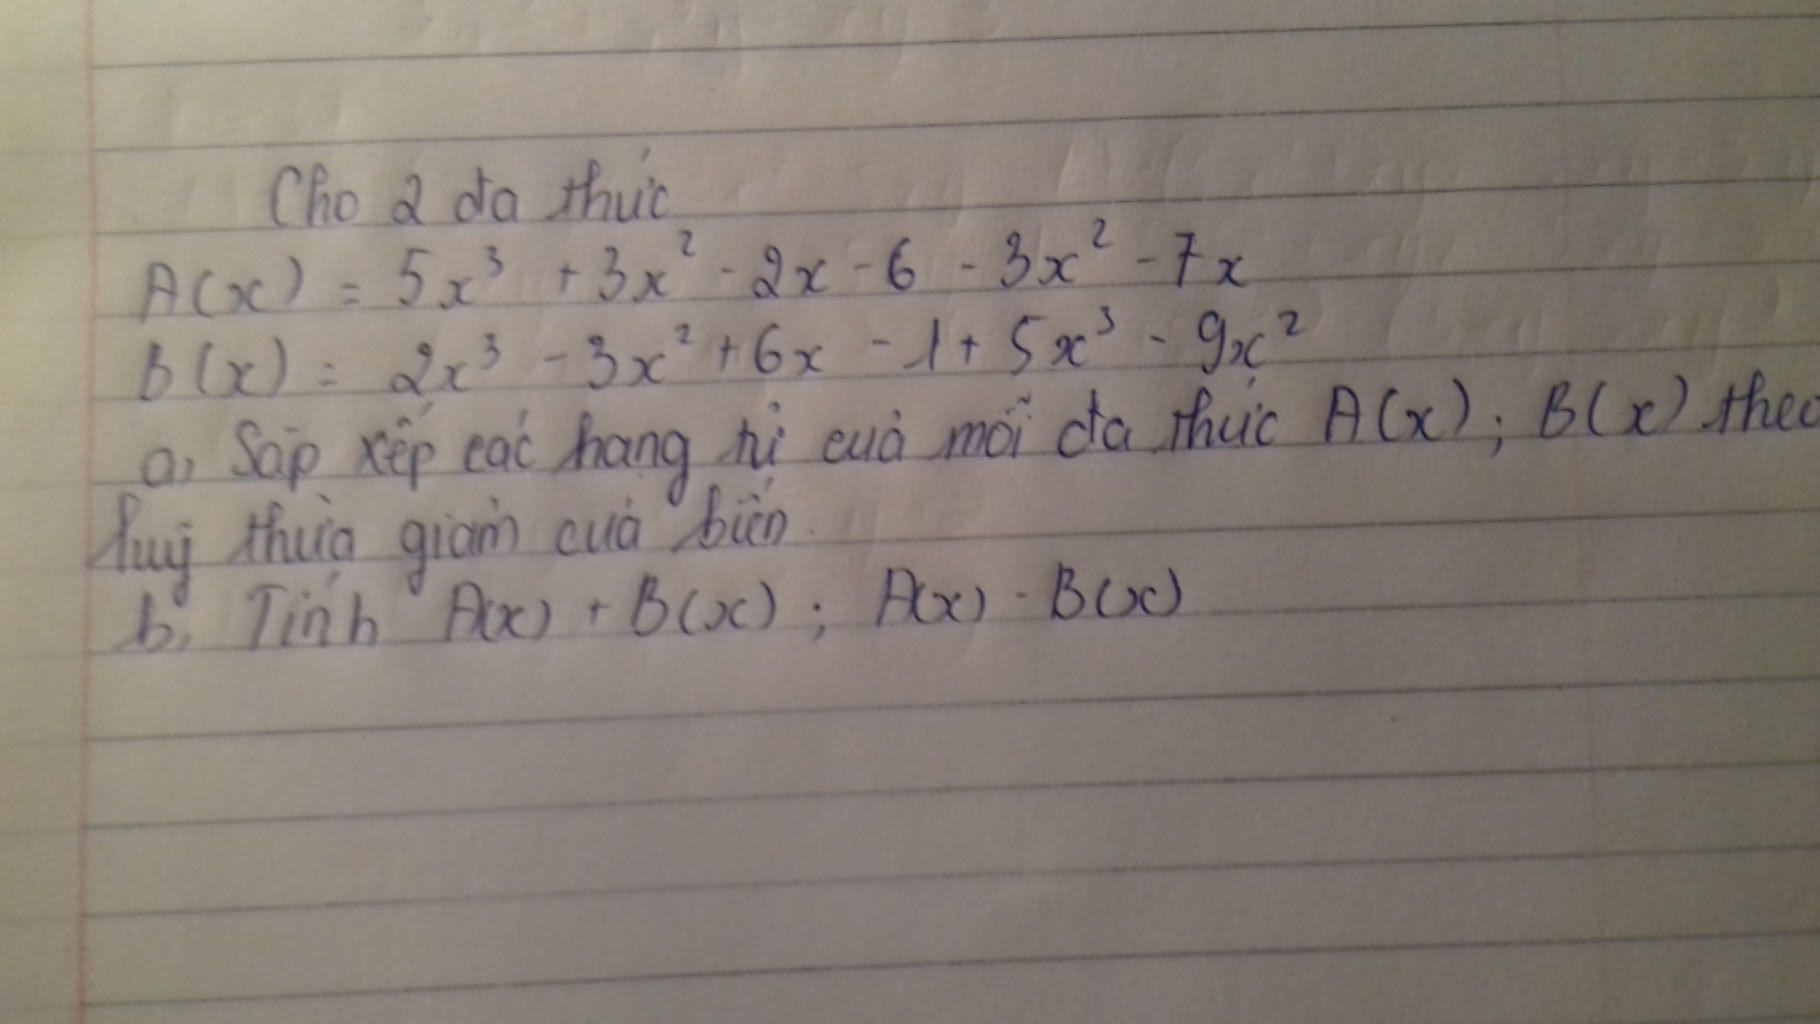 Cho 2 đa thức
A(x) = 5x³ + 3x² - 2x - 6 - 3x² - 7x
B(x) = 2x³ - 3x² + 6x - 1 + 5x³ - 9x²
a, Sắp xếp các hạng tử của mỗi đa thức A(x); B(x) theo
luỹ thừa giảm của biến.
b, Tính A(x) + B(x); A(x) - B(x)